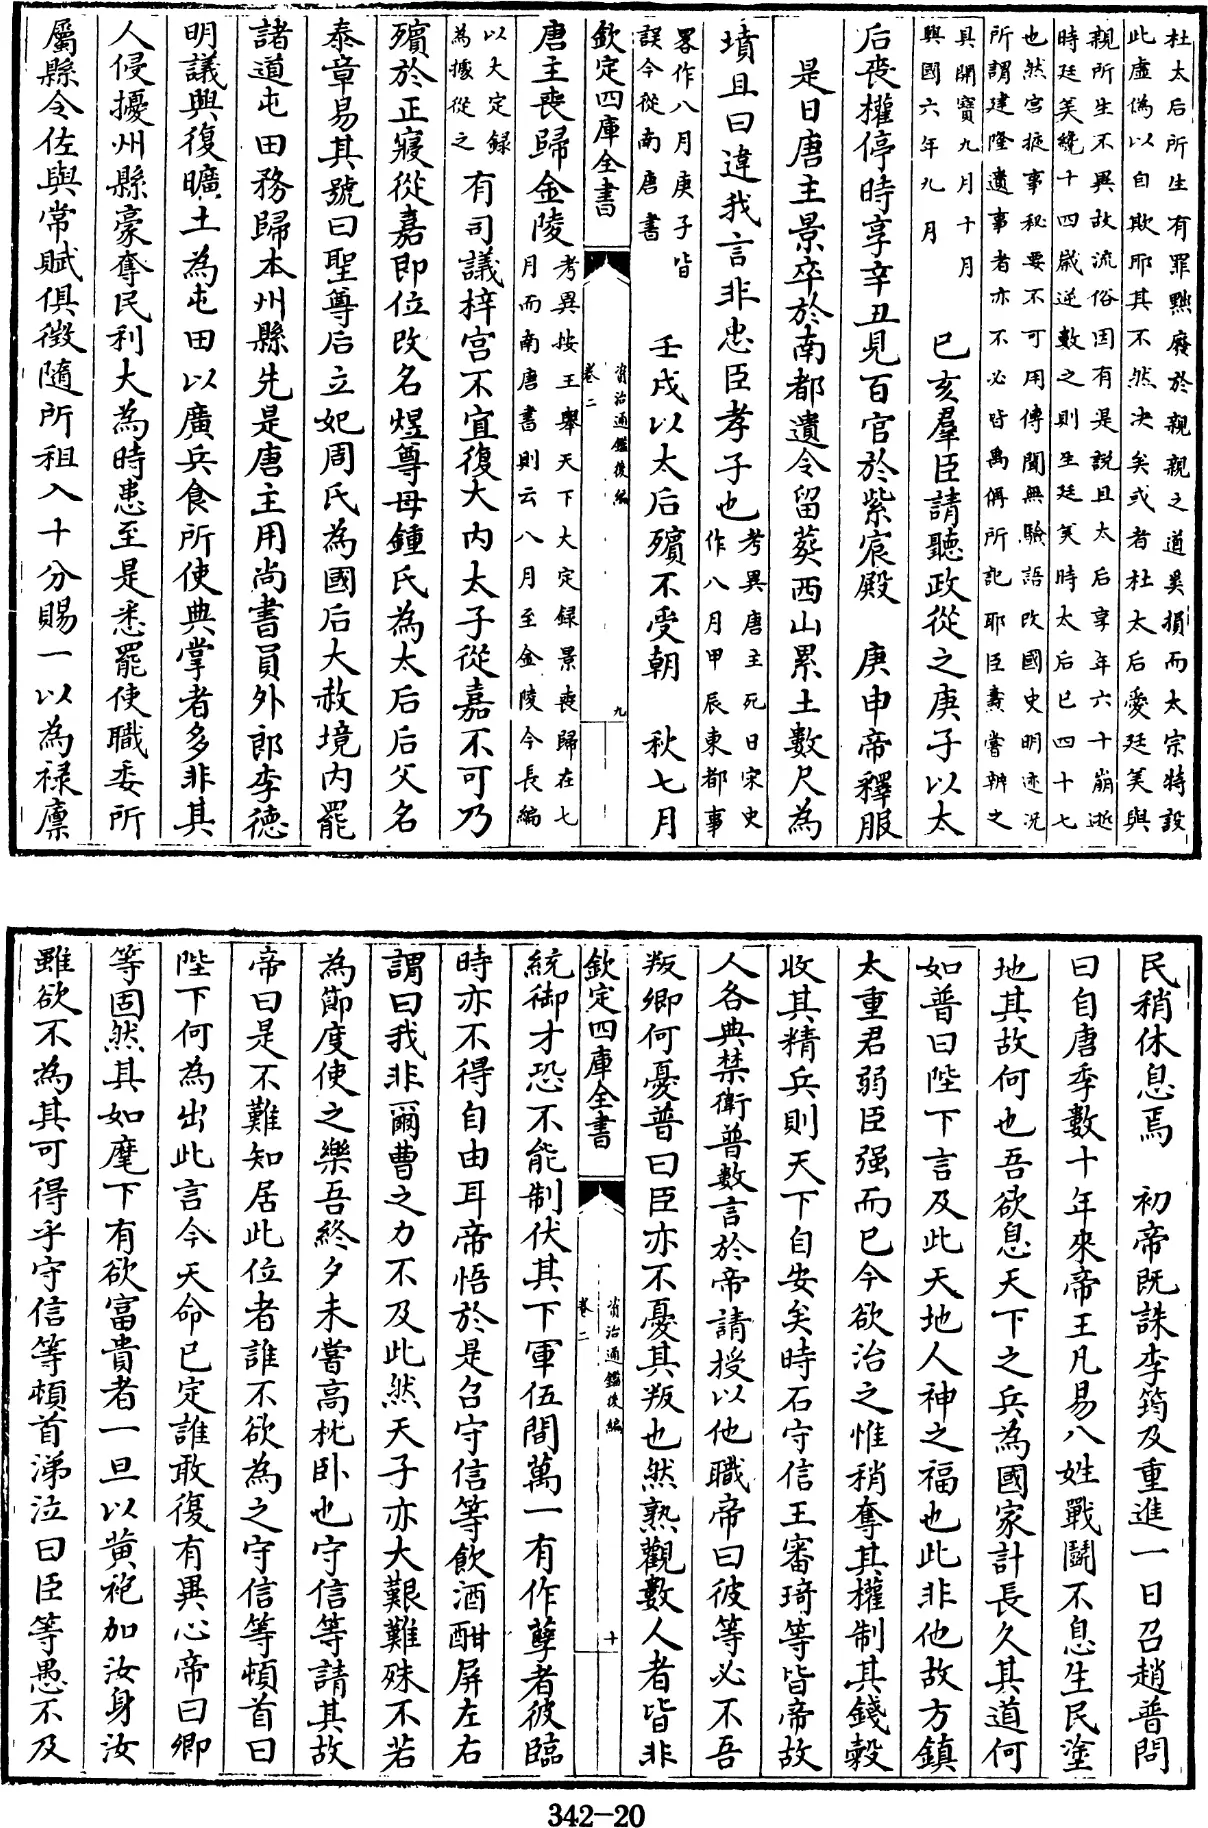 杜太后所生有罪黜廢於親親之道奚損而太宗特設
此虛偽以自欺耶其不然决矣或者杜太后愛廷美與
親所生不異故流俗因有是説且太后享年六十崩逝
時廷美纔十四歲逆數之則生廷美時太后已四十七
也然宫掖事秘要不可用傳聞無驗語改國史明迹况
所謂建隆遺事者亦不必皆禹偁所記耶臣燾嘗辨之
具開寶九月十月
興國六年九月
已亥羣臣請聽政從之庚子以太
后喪權停時享辛丑見百官於紫宸殿　庚申帝釋服
是日唐主景卒於南都遺令留葬西山累土數尺為
墳且曰違我言非忠臣孝子也
考異唐主死日宋史
作八月甲辰東都事
畧作八月庚子皆
誤今從南唐書
壬戌以太后殯不受朝　秋七月
欽定四庫全書
資治通鑑後編
卷二
九
唐主喪歸金陵
考異按王舉天下大定録景喪歸在七
月而南唐書則云八月至金陵今長編
以大定録
為據從之
有司議梓宫不宜復大内太子從嘉不可乃
殯於正寢從嘉即位改名煜尊母鍾氏為太后后父名
泰章易其號曰聖尊后立妃周氏為國后大赦境内罷
諸道屯田務歸本州縣先是唐主用尚書員外郎李德
明議興復曠土為屯田以廣兵食所使典掌者多非其
人侵擾州縣豪奪民利大為時患至是悉罷使職委所
屬縣令佐與常賦俱徴隨所租入十分賜一以為禄廪
民稍休息焉　初帝既誅李筠及重進一日召趙普問
曰自唐季數十年來帝王凡易八姓戰鬭不息生民塗
地其故何也吾欲息天下之兵為國家計長久其道何
如普曰陛下言及此天地人神之福也此非他故方鎮
太重君弱臣强而已今欲治之惟稍奪其權制其錢穀
收其精兵則天下自安矣時石守信王審琦等皆帝故
人各典禁衛普數言於帝請授以他職帝曰彼等必不吾
叛卿何憂普曰臣亦不憂其叛也然熟觀數人者皆非
欽定四庫全書
資治通鑑後編
卷二
十
統御才恐不能制伏其下軍伍間萬一有作孽者彼臨
時亦不得自由耳帝悟於是召守信等飲酒酣屏左右
謂曰我非爾曹之力不及此然天子亦大艱難殊不若
為節度使之樂吾終夕未嘗高枕卧也守信等請其故
帝曰是不難知居此位者誰不欲為之守信等頓首曰
陛下何為出此言今天命已定誰敢復有異心帝曰卿
等固然其如麾下有欲富貴者一旦以黄袍加汝身汝
雖欲不為其可得乎守信等頓首涕泣曰臣等愚不及
342-20